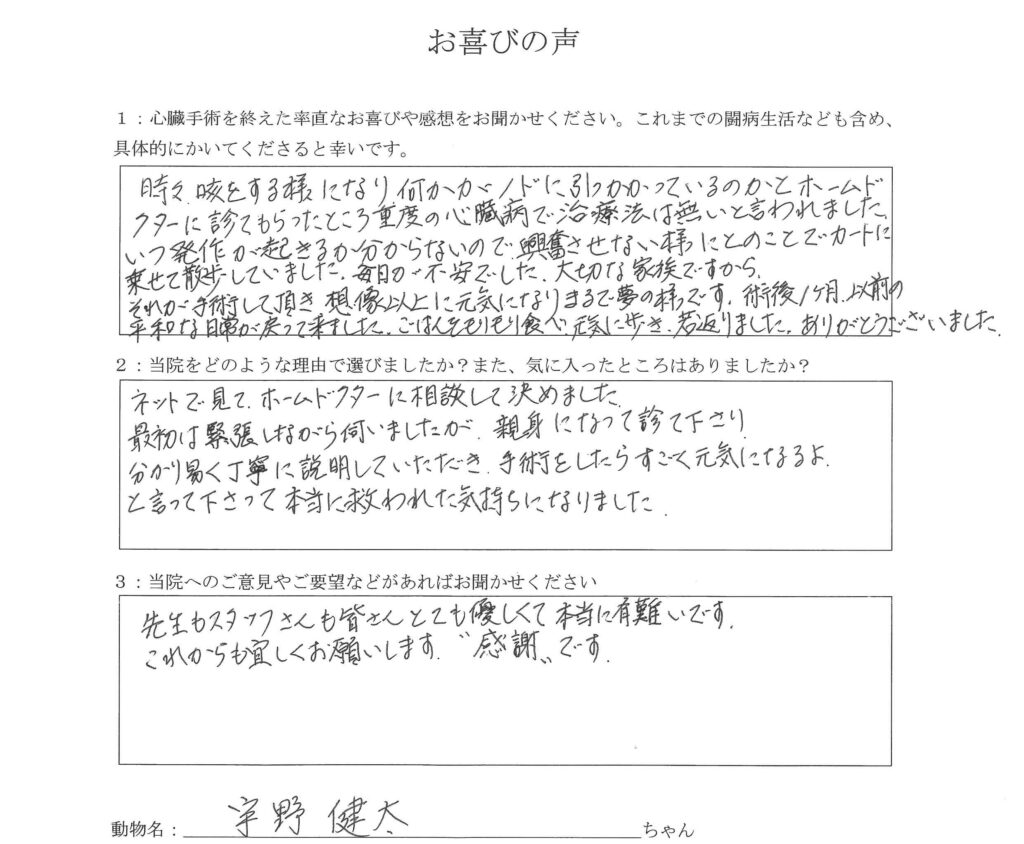 お喜びの声
１：心臓手術を終えた率直なお喜びや感想をお聞かせください。これまでの闘病生活なども含め、
具体的にかいてくださると幸いです。
時々、咳をする様になり何かがノドに引っかかっているのかとホームド
クターに診てもらったところ重度の心臓病で治療法は無いと言われました。
いつ発作が起きるか分からないので、興奮させない様にとのことでカートに
乗せて散歩していました。毎日が不安でした。大切な家族ですから。
それが手術して頂き想像以上に元気になりまるで夢の様です。術後1ヶ月、以前の
平和な日常が戻って来ました。ごはんをもりもり食べ元気に歩き、若返りました。ありがとうございました。
２：当院をどのような理由で選びましたか？また、気に入ったところはありましたか？
ネットで見て、ホームドクターに相談して決めました。
最初は緊張しながら伺いましたが、親身になって診て下さり
分かり易く丁寧に説明していただき、手術をしたらすごく元気になるよ。
と言って下さって本当に救われた気持ちになりました。
３：当院へのご意見やご要望などがあればお聞かせください
先生もスタッフさんも皆さんとても優しくて本当に有難いです。
これからも宜しくお願いします。〝感謝〟です。
動物名：宇野 健太ちゃん